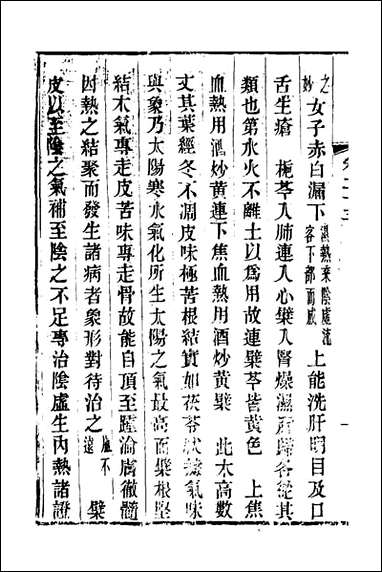 之妙女子赤白漏下濕熱乘陰虛流客下部而成上能洗肝明目及口
舌生瘡 梔芩入肺連入心檗入腎燥濕歸各從其
類也第水火不離土以爲用故連檗芩皆黃色 上焦
血熱用酒炒黃連下焦血熱用酒炒黃檗 此木高數
丈其葉經冬不凋皮味極苦根結實如茯苓狀氣味
與象乃太陽寒水氣化所生太陽之氣最高而檗根堅
結木氣專走皮苦味專走骨故能自頂至踵淪膚徹髓
因熱之結聚而發生諸病者象形對待治之遠 檗
皮以至陰之氣補至陰之不足專治陰虛生內熱諸證